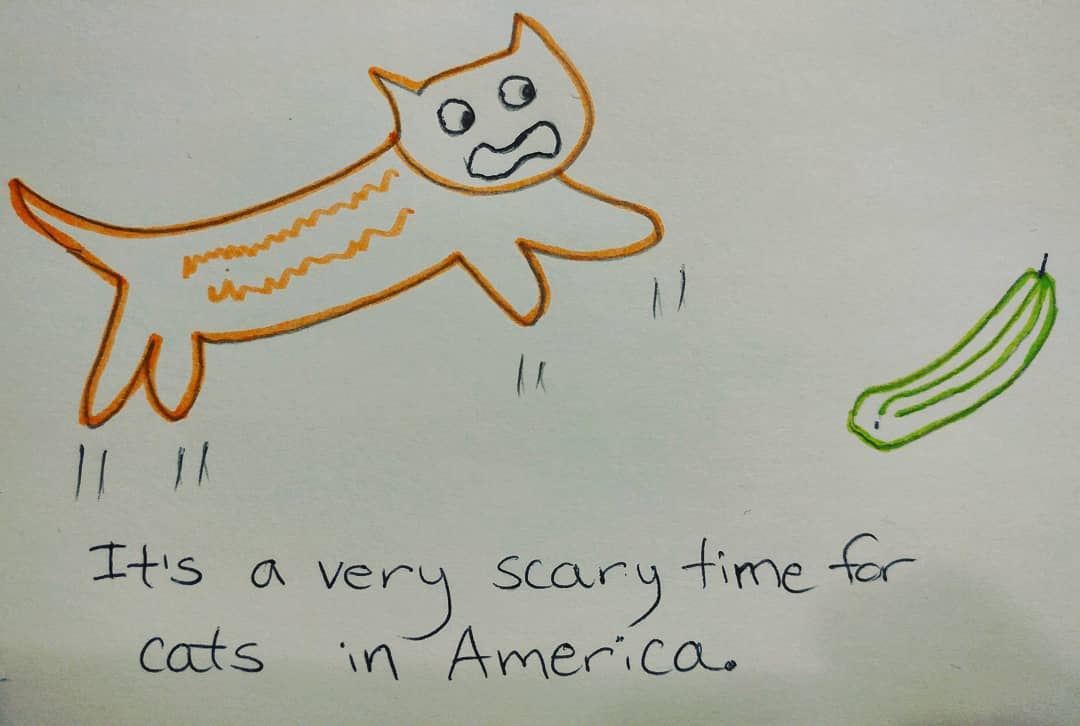 It's a very scary time for
cats in America.